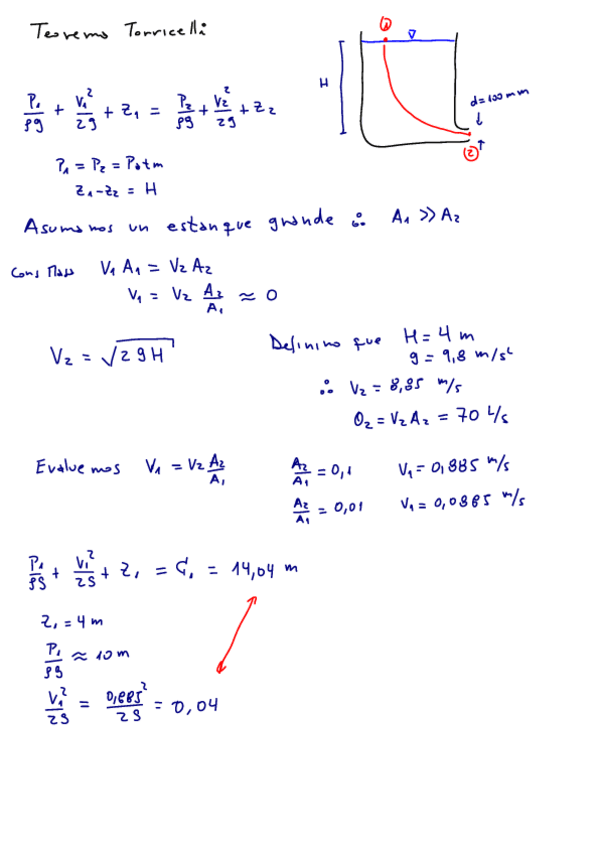 Teorema Torricelli
①
∇
H
d=100 mm
②
P₁/ρg + V₁²/2g + Z₁ = P₂/ρg + V₂²/2g + Z₂
P₁ = P₂ = Patm
Z₁-Z₂ = H
Asumamos un estanque grande ∴ A₁ >> A₂
Cons Masa V₁ A₁ = V₂ A₂
V₁ = V₂ A₂/A₁ ≈ 0
V₂ = √2gH
Definimo que H = 4 m
g = 9,8 m/s²
∴ V₂ = 8,85 m/s
Q₂ = V₂A₂ = 70 L/s
Evaluemos V₁ = V₂ A₂/A₁
A₂/A₁ = 0,1 V₁ = 0,885 m/s
A₂/A₁ = 0,01 V₁ = 0,0885 m/s
P₁/ρg + V₁²/2g + Z₁ = C₁ = 14,04 m
Z₁ = 4 m
P₁/ρg ≈ 10 m
V₁²/2g = 0,885²/2g = 0,04